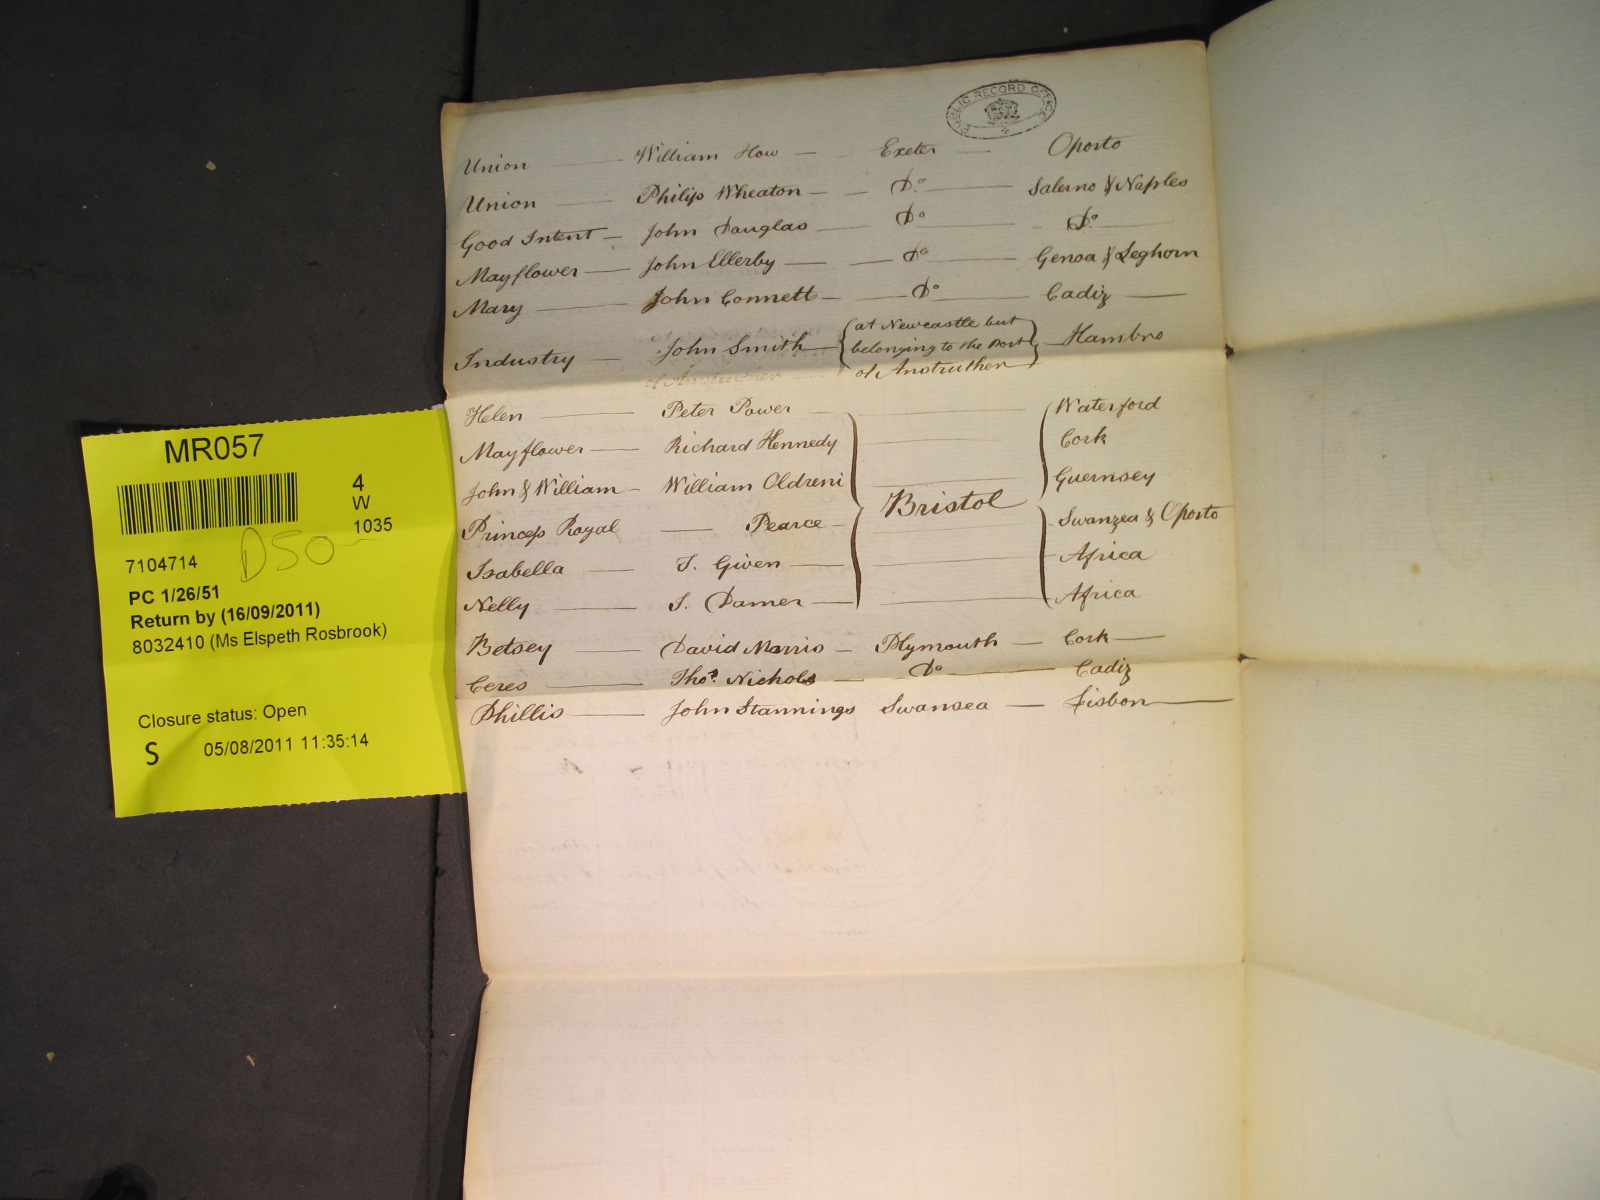 PUBLIC RECORD OFFICE
Union — William How — Exeter — Oporto
Union — Philip Wheaton — Do — Salerno & Naples
Good Intent — John Douglas — Do — Do
Mayflower — John Ellerby — Do — Genoa & Leghorn
Mary — John Connett — Do — Cadiz
Industry — John Smith — {at Newcastle but
belonging to the Port
of Anstruther} — Hambro
of Anstruther
Helen — Peter Power — Waterford
Mayflower — Richard Kennedy — Cork
John & William — William Oldreni — Guernsey
Bristol
Princess Royal — Pearce — Swanzea & Oporto
Isabella — T. Given — Africa
Nelly — T. Damer — Africa
Betsey — David Morris — Plymouth — Cork
Ceres — Thos. Nichols — Do — Cadiz
Phillis — John Stannings Swansea — Lisbon
MR057
4
W
1035
D50
7104714
PC 1/26/51
Return by (16/09/2011)
8032410 (Ms Elspeth Rosbrook)
Closure status: Open
S 05/08/2011 11:35:14